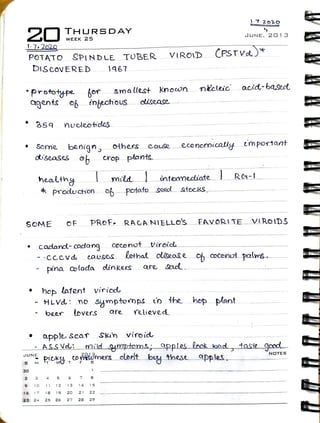 1.7.2020
20 THURSDAY
WEEK 25
JUNE, 2013
1.7.2020
POTATO SPINDLE TUBER VIROID (PSTVd)*
DISCOVERED 1967
* prototype for smallest known nucleic acid-based
agents of infectious disease
* 359 nucleotides
* some benign, others cause economically important
diseases of crop plants
healthy | mild | intermediate | RG-1
* production of potato seed stocks.
SOME OF PROF. RACANIELLO'S FAVORITE VIROIDS
• cadand-cadang coconut viroid
- CCCVd causes lethal disease of coconut palms.
- pina colada dinkers are sad.
• hop latent viriod
- HLVd: no symptomps in the hop plant
- beer lovers are relieved.
• apple scar skin viroid
- ASSVd: mild symptoms; apples look weird, taste good
- picky consumers don't buy these apples.
JUNE 2013
NOTES
S M T W T F S
30 1
2 3 4 5 6 7 8
9 10 11 12 13 14 15
16 17 18 19 20 21 22
23 24 25 26 27 28 29